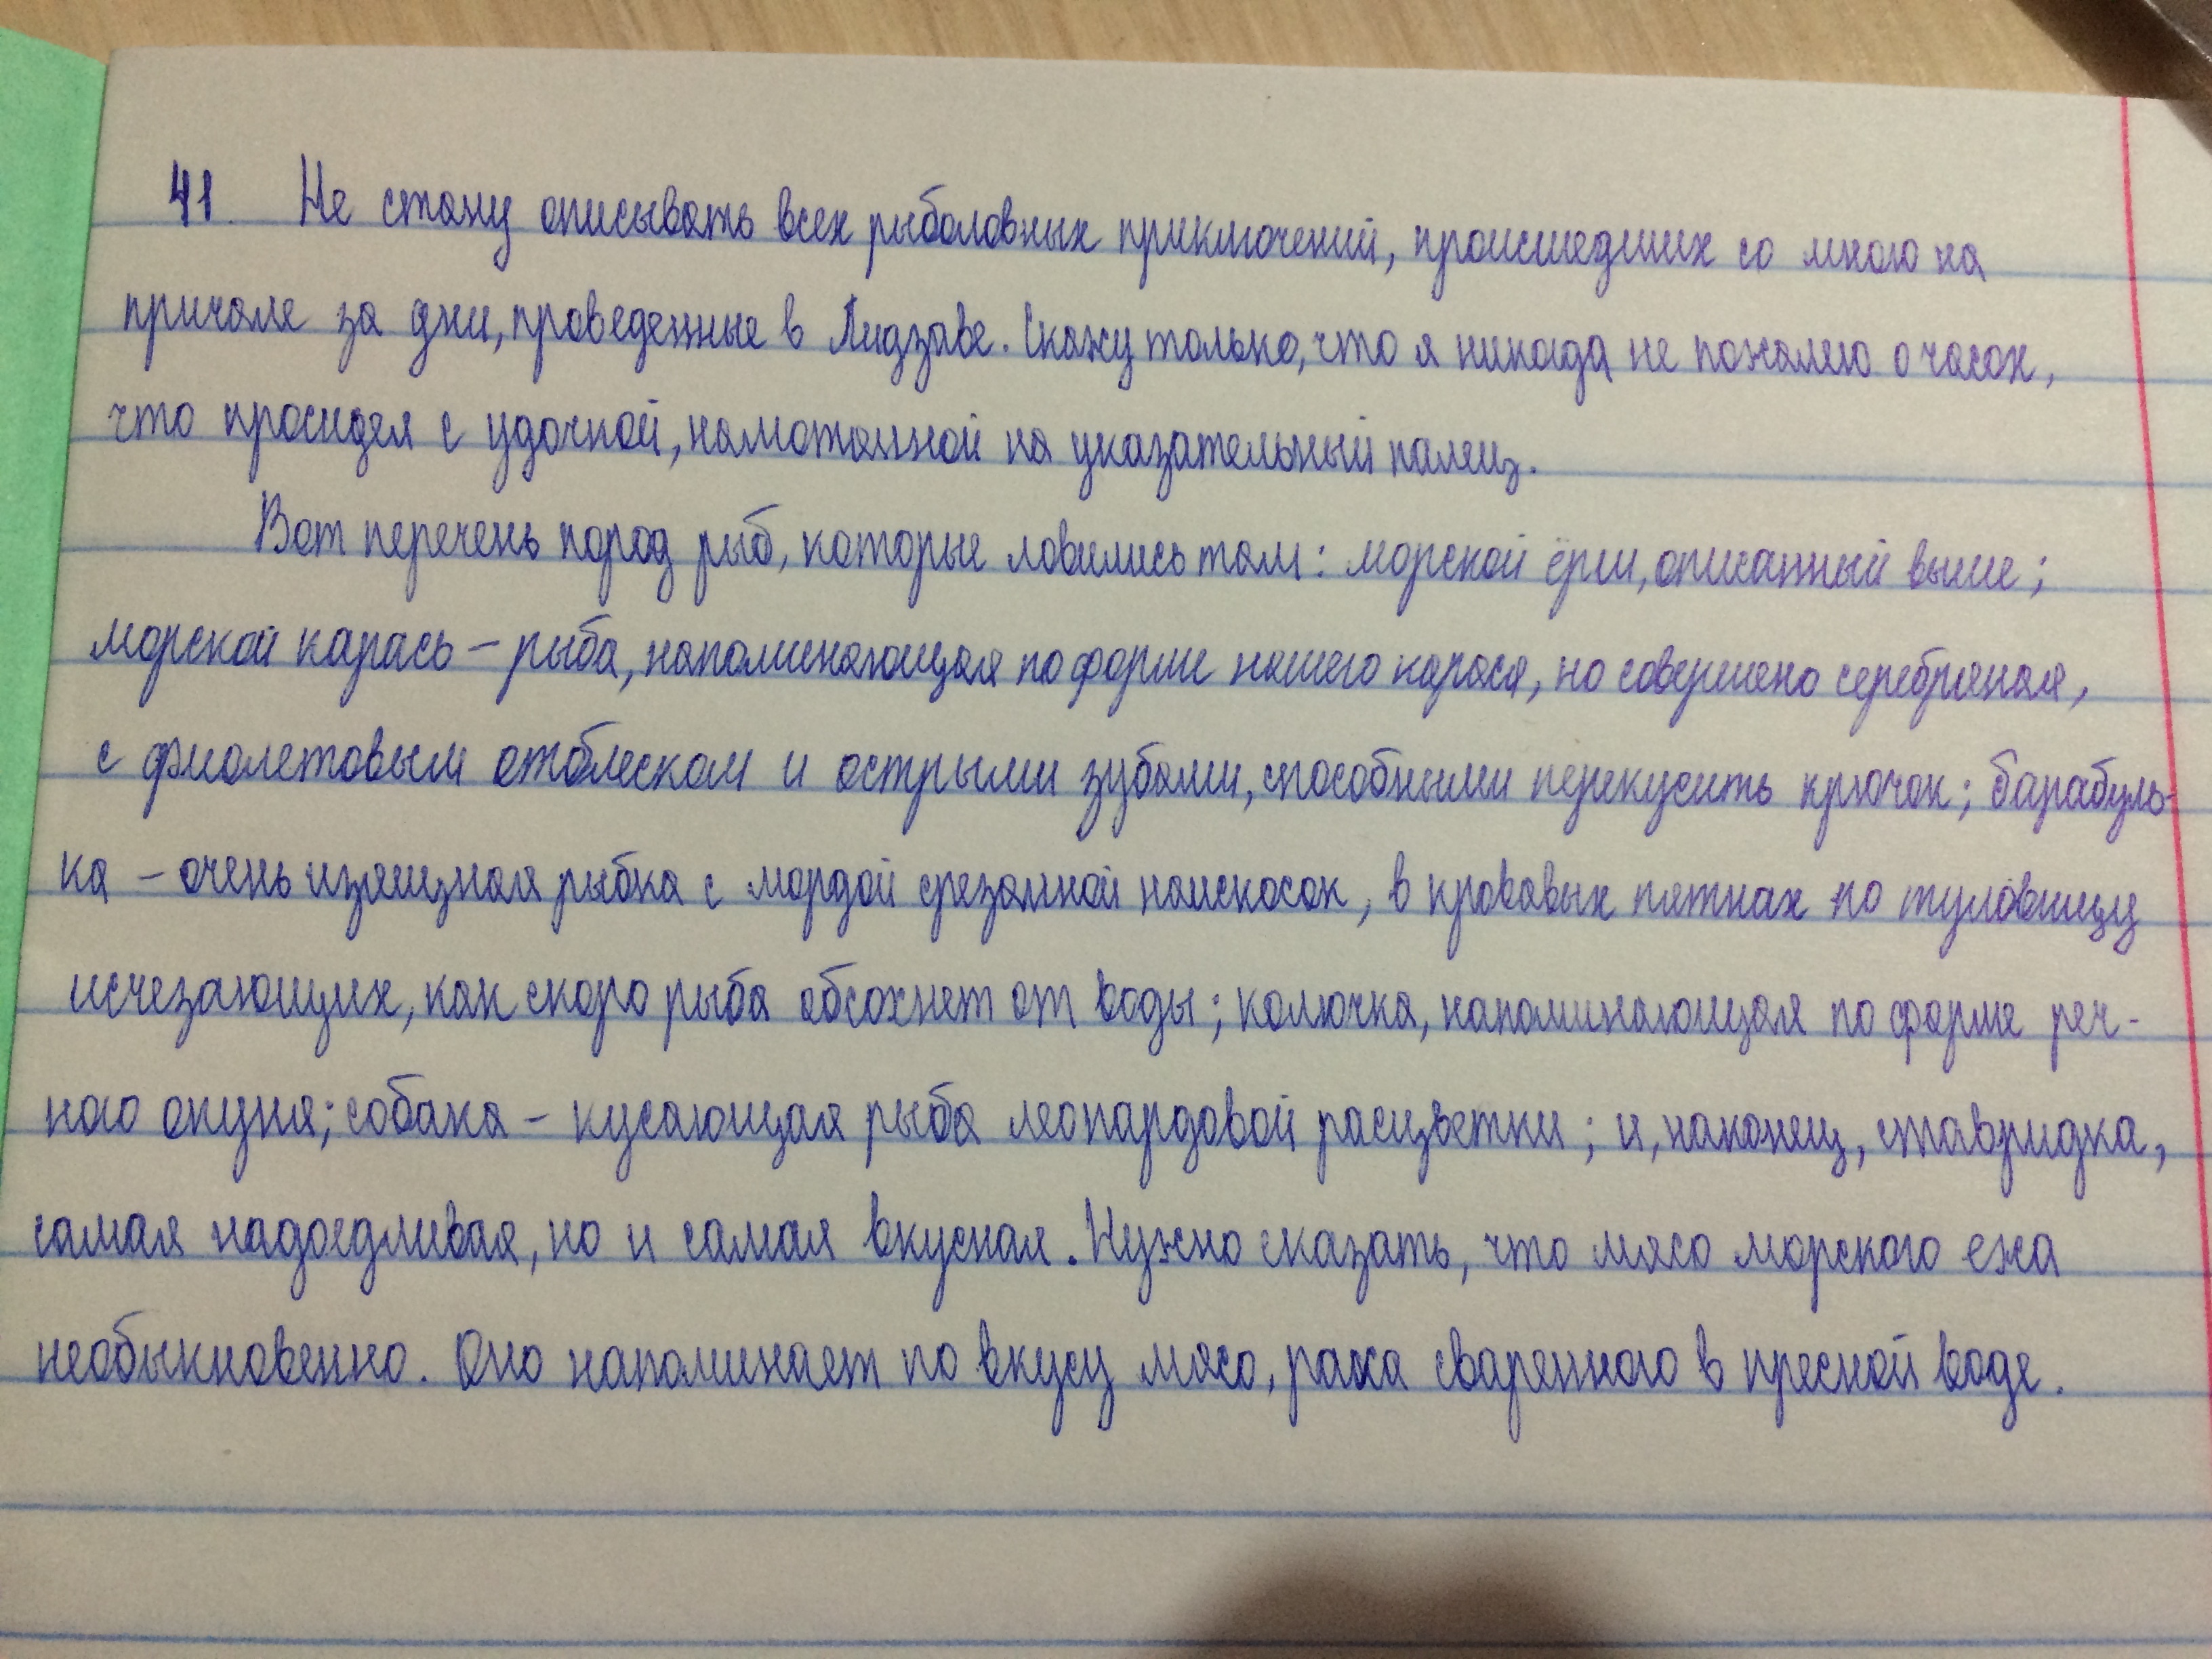 41. Не стану описывать всех рыболовных приключений, происшедших со мною на
причале за дни, проведенные в Лидзаве. Скажу только, что я никогда не пожалею о часах,
что просидел с удочкой, намотанной на указательный палец.
Вот перечень пород рыб, которые ловились там: морской ёрш, описанный выше;
морской карась - рыба, напоминающая по форме нашего карася, но совершено серебряная,
с фиолетовым отблеском и острыми зубами, способными перекусить крючок; барабуль-
ка - очень изящная рыбка с мордой срезанной наискосок, в кровавых пятнах по туловищу
исчезающих, как скоро рыба обсохнет от воды; колючка, напоминающая по форме реч-
ного окуня; собака - кусающая рыба леопардовой расцветки; и, наконец, ставридка,
самая надоедливая, но и самая вкусная. Нужно сказать, что мясо морского ежа
необыкновенно. Оно напоминает по вкусу мясо, рака сваренного в пресной воде.